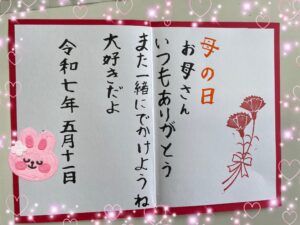 母の日
お母さん
いつもありがとう
また一緒にでかけようね
大好きだよ
令和七年五月十一日